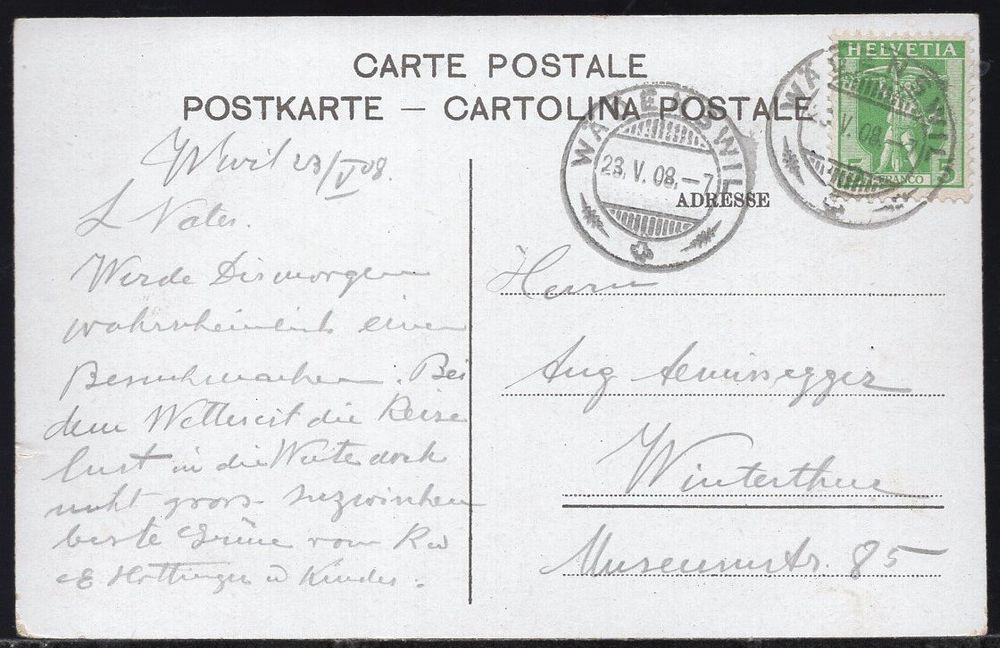 CARTE POSTALE
POSTKARTE — CARTOLINA POSTALE
HELVETIA
5 FRANCO 5
WÄDENSWIL
23.V.08.–7
WÄDENSWIL
23.V.08.–7
ADRESSE
Wwil 23/V 08.
L Vater.
Werde Dir morgen
wahrscheinlich einen
Besuch machen. Bei
dem Wetter ist die Reise
lust in die Weite doch
nicht gross. Inzwischen
beste Grüsse von
E Hottinger u Kinder.
Herrn
Aug
Winterthur
Museumstr. 85